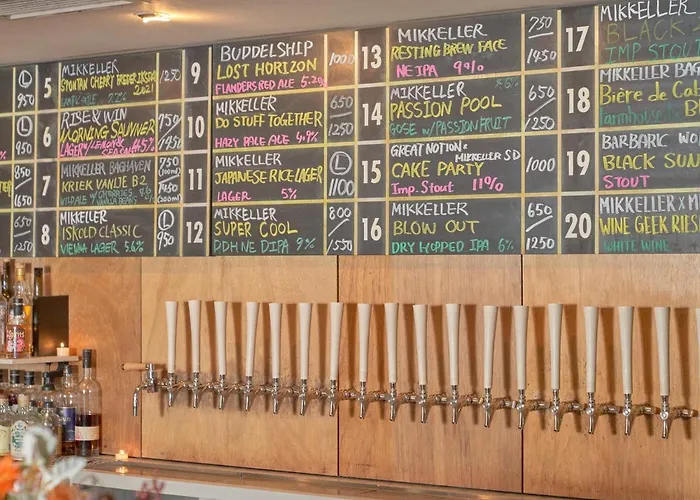 L
950
L
950
650
950
650
5
MIKKELLER
SPONTAN CHERRY FREDERIKSDAL
2021
7.7%
1250
6
RISE & WIN
MORNING SAUVNER
LAGERY
4.5%
750
1450
7
MIKKELLER BAGHAVEN
KRIEK VANLJE B.2
WILD ALE W/CHERRIES &
VANILLA BEANS
750
8
MIKKELLER
ISKOLD CLASSIC
VIENNA LAGER 5.6%
L
950
9
BUDDELSHIP
LOST HORIZON
FLANDERS RED ALE 5.2%
1000
10
MIKKELLER
DO STUFF TOGETHER
HAZY PALE ALE 4.9%
650
1250
11
MIKKELLER
JAPANESE RICE LAGER
LAGER 5%
L
1100
12
MIKKELLER
SUPER COOL
DDH NE DIPA 9%
800
1550
13
MIKKELLER
RESTING BREW FACE
NE IPA 9%
750
1450
14
MIKKELLER
PASSION POOL
GOSE W/PASSION FRUIT
650
1250
15
GREAT NOTION &
MIKKELLER SD
CAKE PARTY
IMP. STOUT 11%
1000
16
MIKKELLER
BLOW OUT
DRY HOPPED IPA 6%
650
1250
17
MIKKELLER
BLACK
IMP STOUT
18
MIKKELLER BAG
Bière de Ca
19
BARBARIC WO
BLACK SUN
STOUT
20
MIKKELLER X M
WINE GEEK RIES
WHITE WINE